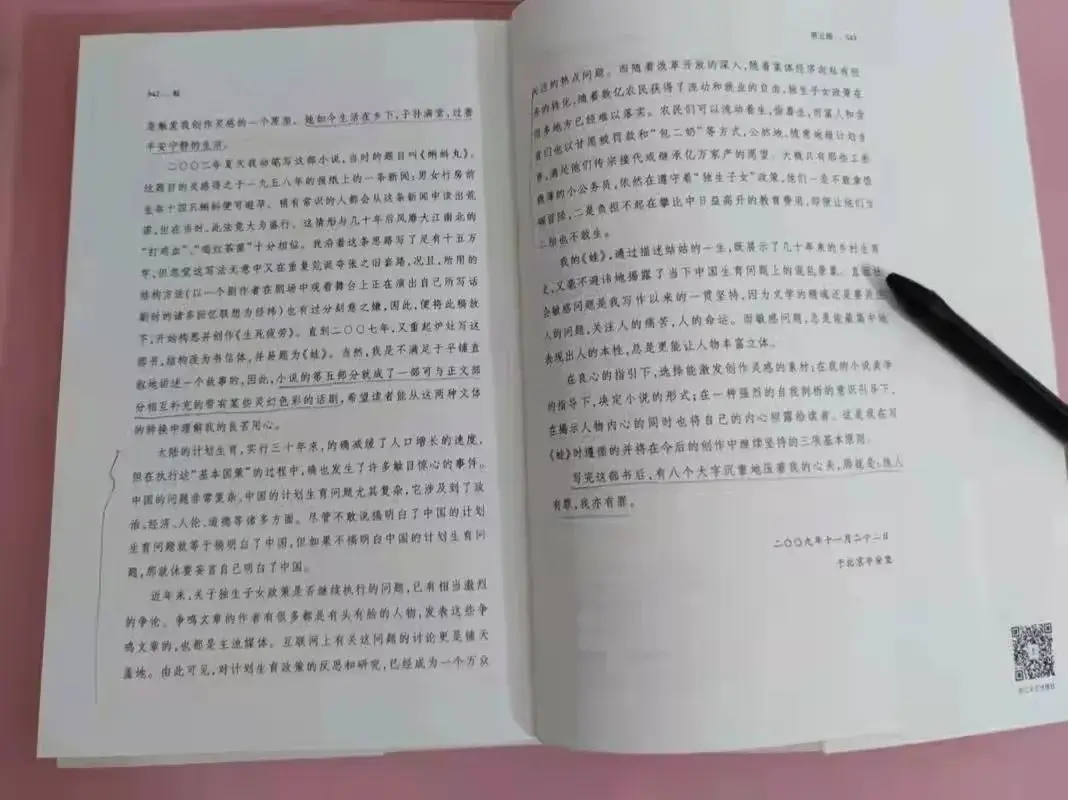 342 . 蛙
是触发我创作灵感的一个原因。她如今生活在乡下,子孙满堂,过着
平安宁静的生活。
二〇〇二年夏天我动笔写这部小说,当时的题目叫《蝌蚪丸》。
这题目的灵感得之于一九五八年的报纸上的一条新闻:男女行房前
生吞十四只蝌蚪便可避孕。稍有常识的人都会从这条新闻中读出荒
诞,但在当时,此法竟大为盛行。这情形与几十年后风靡大江南北的
“打鸡血”、“喝红茶菌”十分相似。我沿着这条思路写了足有十五万
字,但忽觉这写法无意中又在重复荒诞夸张之旧套路,况且,所用的
结构方法(以一个剧作者在剧场中观看舞台上正在演出自己所写话
剧时的诸多回忆联想为经纬)也有过分刻意之嫌,因此,便将此稿放
下,开始构思并创作《生死疲劳》。直到二〇〇七年,又重起炉灶写这
部书,结构改为书信体,并易题为《蛙》。当然,我是不满足于平铺直
叙地讲述一个故事的,因此,小说的第五部分就成了一部可与正文部
分相互补充的带有某些灵幻色彩的话剧,希望读者能从这两种文体
的转换中理解我的良苦用心。
大陆的计划生育,实行三十年来,的确减缓了人口增长的速度,
但在执行这“基本国策”的过程中,确也发生了许多触目惊心的事件。
中国的问题非常复杂,中国的计划生育问题尤其复杂,它涉及到了政
治、经济、人伦、道德等诸多方面。尽管不敢说搞明白了中国的计划
生育问题就等于搞明白了中国,但如果不搞明白中国的计划生育问
题,那就休要妄言自己明白了中国。
近年来,关于独生子女政策是否继续执行的问题,已有相当激烈
的争论。争鸣文章的作者有很多都是有头有脸的人物,发表这些争
鸣文章的,也都是主流媒体。互联网上有关这问题的讨论更是铺天
盖地。由此可见,对计划生育政策的反思和研究,已经成为一个万众
第五部 . 343
关注的热点问题。而随着改革开放的深入,随着集体经济向私有经
济的转化,随着数亿农民获得了流动和就业的自由,独生子女政策在
很多地方已经难以落实。农民们可以流动着生,偷着生,而富人和贪
官们也以甘愿被罚款和“包二奶”等方式,公然地、随意地超计划生
育,满足他们传宗接代或继承亿万家产的愿望。大概只有那些工薪
微薄的小公务员,依然在遵守着“独生子女”政策,他们一是不敢拿饭
碗冒险,二是负担不起在攀比中日益高升的教育费用,即便让他们生
二胎也不敢生。
我的《蛙》,通过描述姑姑的一生,既展示了几十年来的乡村生育
史,又毫不避讳地揭露了当下中国生育问题上的混乱景象。直面社
会敏感问题是我写作以来的一贯坚持,因为文学的精魂还是要关注
人的问题,关注人的痛苦,人的命运。而敏感问题,总是能最集中地
表现出人的本性,总是更能让人物丰富立体。
在良心的指引下,选择能激发创作灵感的素材;在我的小说美学
的指导下,决定小说的形式;在一种强烈的自我剖析的意识引导下,
在揭示人物内心的同时也将自己的内心袒露给读者。这是我在写
《蛙》时遵循的并将在今后的创作中继续坚持的三项基本原则。
写完这部书后,有八个大字沉重地压着我的心头,那就是:他人
有罪,我亦有罪。
二〇〇九年十一月二十二日
于北京平安里